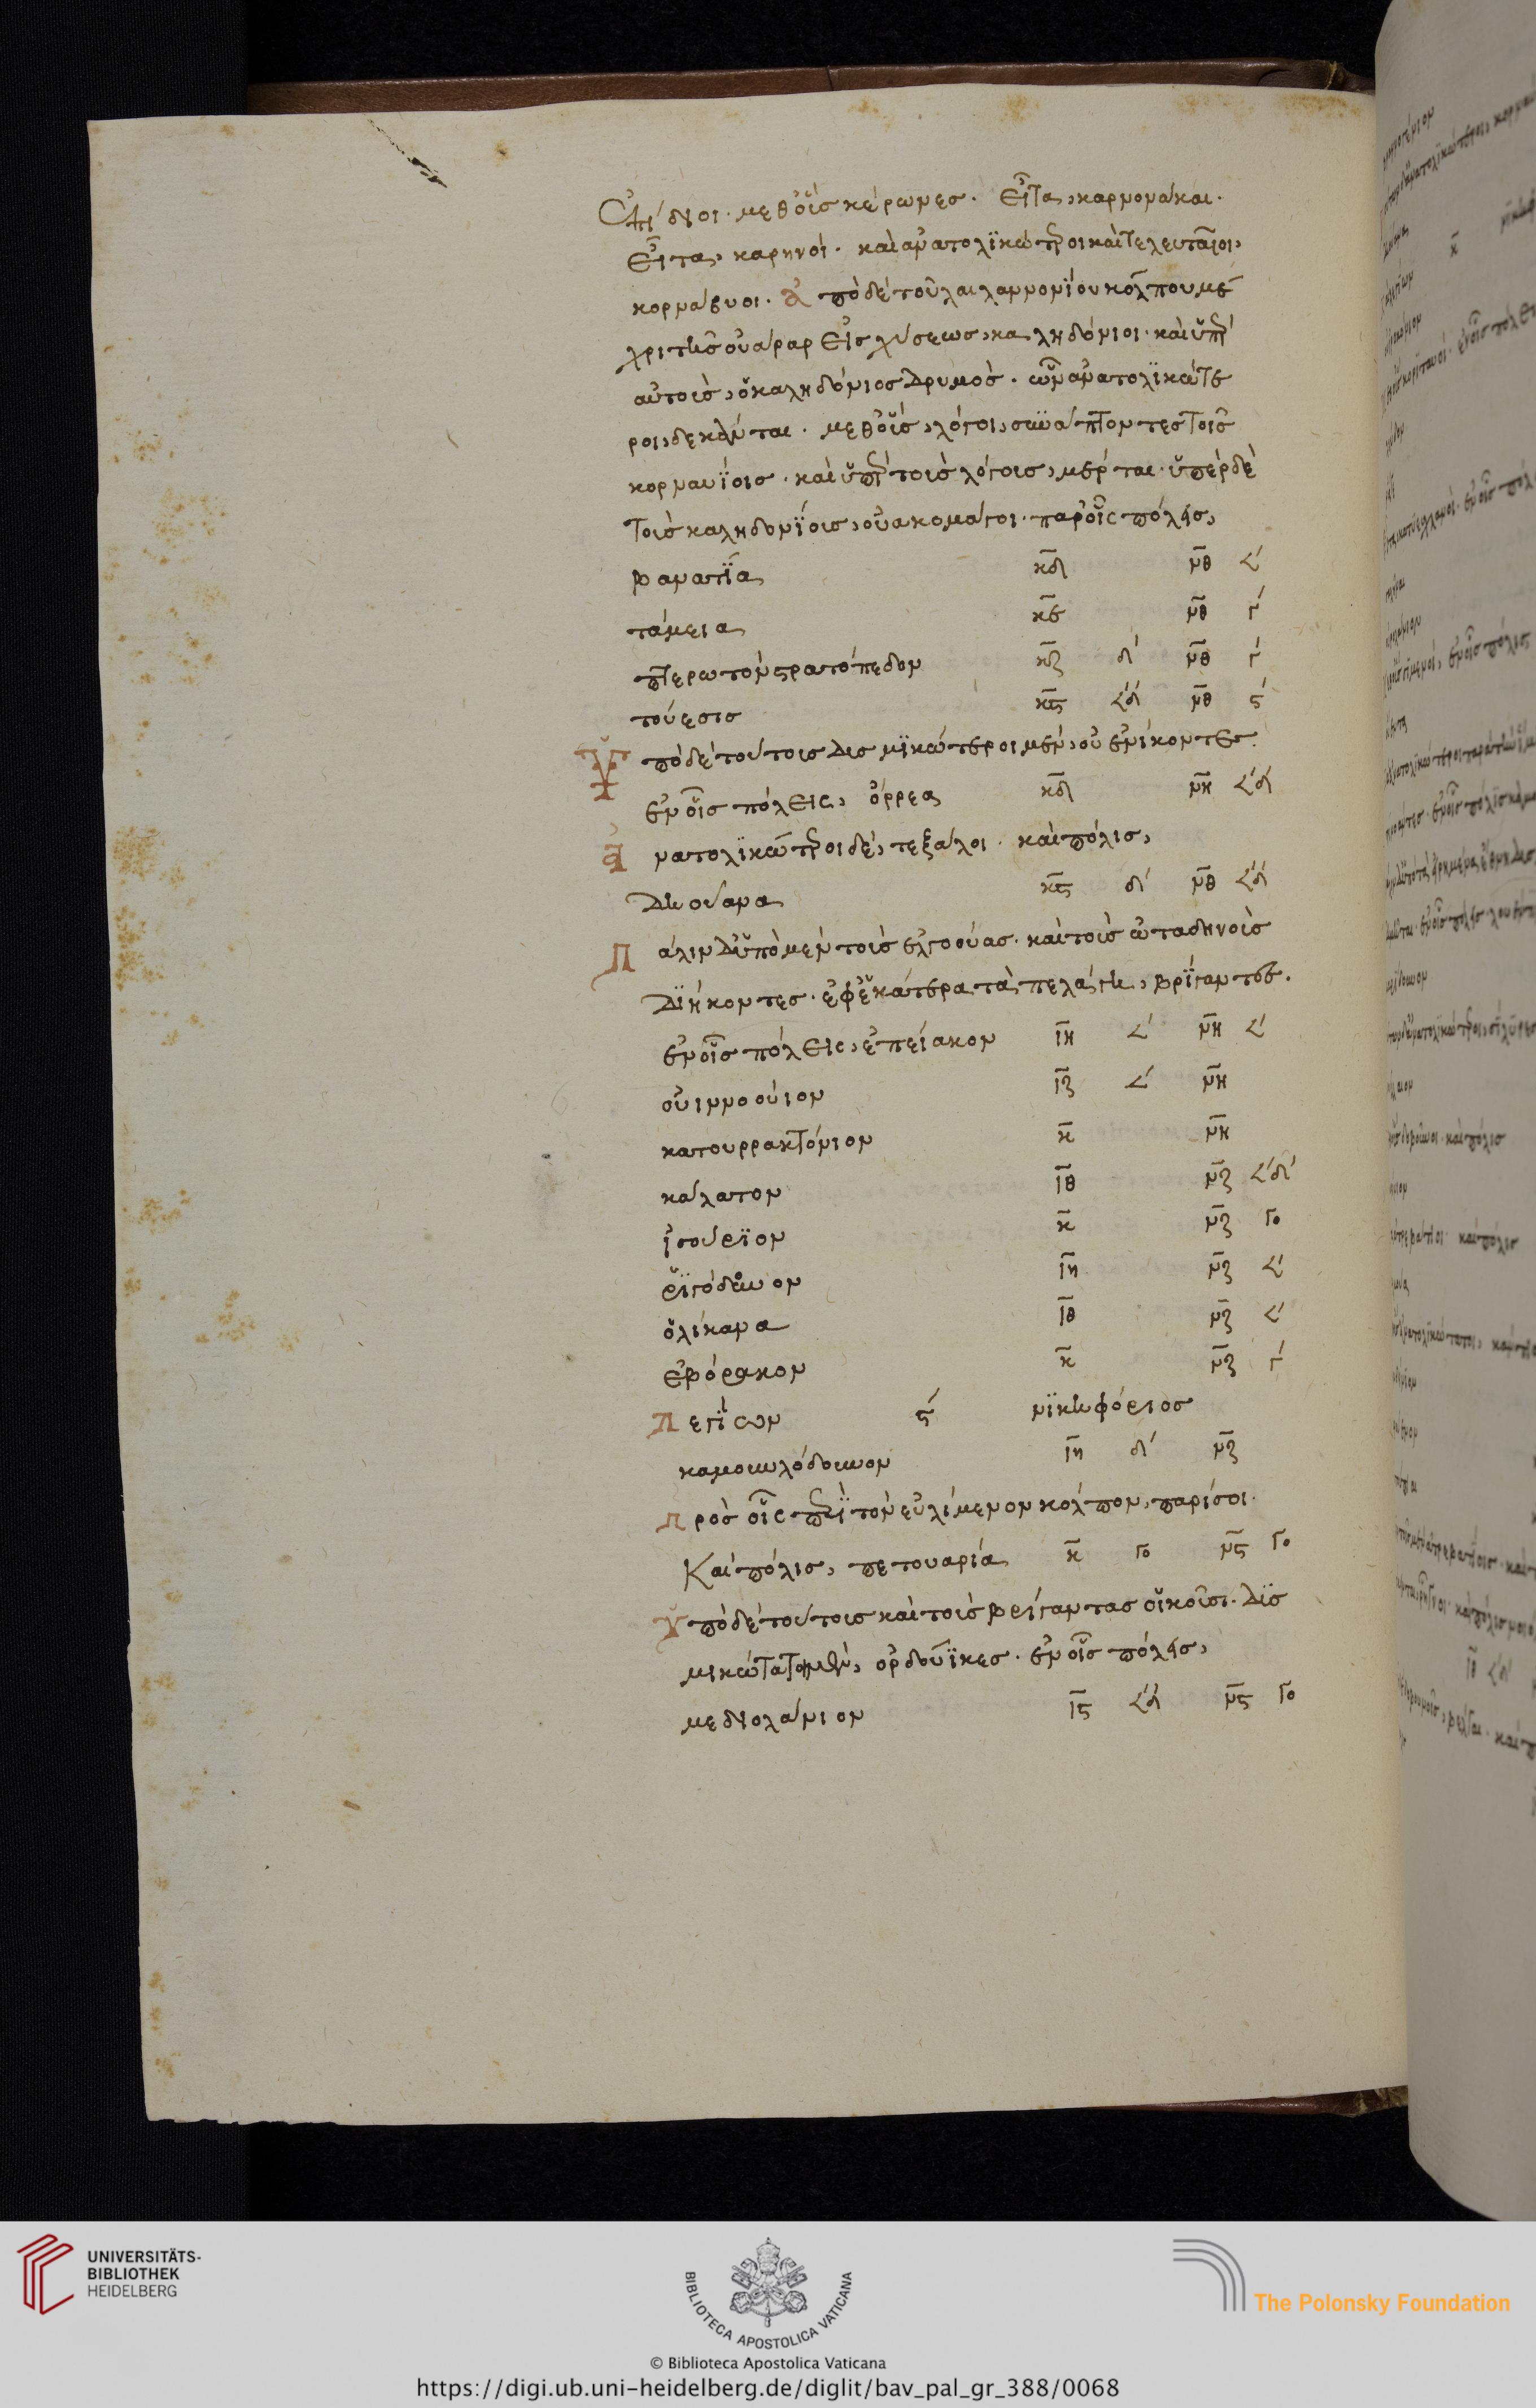 Ἐπίδιοι· μεθ οὓς κέρωνες. Εἶτα, καρνονάκαι.
Εἶτα, καρηνοί. καὶ ἀνατολϊκώτεροι καὶ τελευταῖοι,
κορνάβυοι. ἀπὸ δὲ τοῦ λαιλαμνονίου κόλπου μέ
χρι τῆς οὐάραρ εἰσχύσεως, καληδόνιοι. καὶ ὑπὲρ
αὐτοὺς, ὁ καληδόνιος δρυμός. ὧν ἀνατολϊκώτε
ροι, δεκάνται. μεθ οὓς, λόγοι, συνάπτοντες τοῖς
κορναυΐοις. καὶ ὑπὲρ τοὺς λόγους, μέρται. ὑπὲρ δὲ
τοὺς καληδονΐους, οὐακομάγοι. παρ οἷς πόλεις,
βανατΐα κ̅δ̅ ν̅θ̅ 𐅵ʹ
τάμεια κ̅ε̅ ν̅θ̅ γʹ
πτερωτὸν στρατόπεδον κ̅ζ̅ δʹ ν̅θ̅ γʹ
τούεσις κ̅ϛ̅ 𐅵ʹδʹ ν̅θ̅ ϛʹ
Ὑπὸ δὲ τούτοις δισμϊκώτεροι μέν, οὐενίκοντες.
ἐν οἷς πόλεις, ὄρρεα κ̅δ̅ ν̅η̅ 𐅵ʹδʹ
ἀνατολϊκώτεροι δὲ, τεξάλοι. καὶ πόλις,
Δηούανα κ̅ϛ̅ δʹ ν̅θ̅ 𐅵ʹδʹ
Πάλιν δ ὑπὸ μὲν τοὺς ελγοούας. καὶ τοὺς ὠταδηνοὺς
Διήκοντες. ἐφ ἑκάτερα τὰ πελάγη, βρΐγαντες.
ἐν οἷς πόλεις, ἐπείακον ι̅η̅ 𐅵ʹ ν̅η̅ 𐅵ʹ
οὐιννοούιον ι̅ζ̅ 𐅵ʹ ν̅η̅
κατουρρακτόνιον κ̅ ν̅η̅
κάλατον ι̅θ̅ ν̅ζ̅ 𐅵ʹδʹ
ἰσούρϊον κ̅ ν̅ζ̅ γο
ῥϊγόδουνον ι̅η̅ ν̅ζ̅ 𐅵ʹ
ὀλίκανα ι̅θ̅ ν̅ζ̅ 𐅵ʹ
ἐβόρακον κ̅ ν̅ζ̅ γʹ
Λεγΐων ϛʹ νϊκηφόριος
καμουνλόδουνον ι̅η̅ δʹ ν̅ζ̅
Πρὸς οἷς περὶ τὸν εὐλίμενον κόλπον, παρίσοι.
Καὶ πόλις, πετουαρία κ̅ γο ν̅ϛ̅ γο
Ὑπὸ δὲ τούτοις καὶ τοὺς βρίγαντας οἰκοῦσι. Δϊσ
μικώτατοι μὲν, ὀρδούϊκες. ἐν οἷς πόλεις,
μεδιολάνιον ι̅ϛ̅ 𐅵ʹδʹ ν̅ϛ̅ γο
UNIVERSITÄTS-
BIBLIOTHEK
HEIDELBERG
BIBLIOTECA APOSTOLICA VATICANA
© Biblioteca Apostolica Vaticana
The Polonsky Foundation
https://digi.ub.uni-heidelberg.de/diglit/bav_pal_gr_388/0068